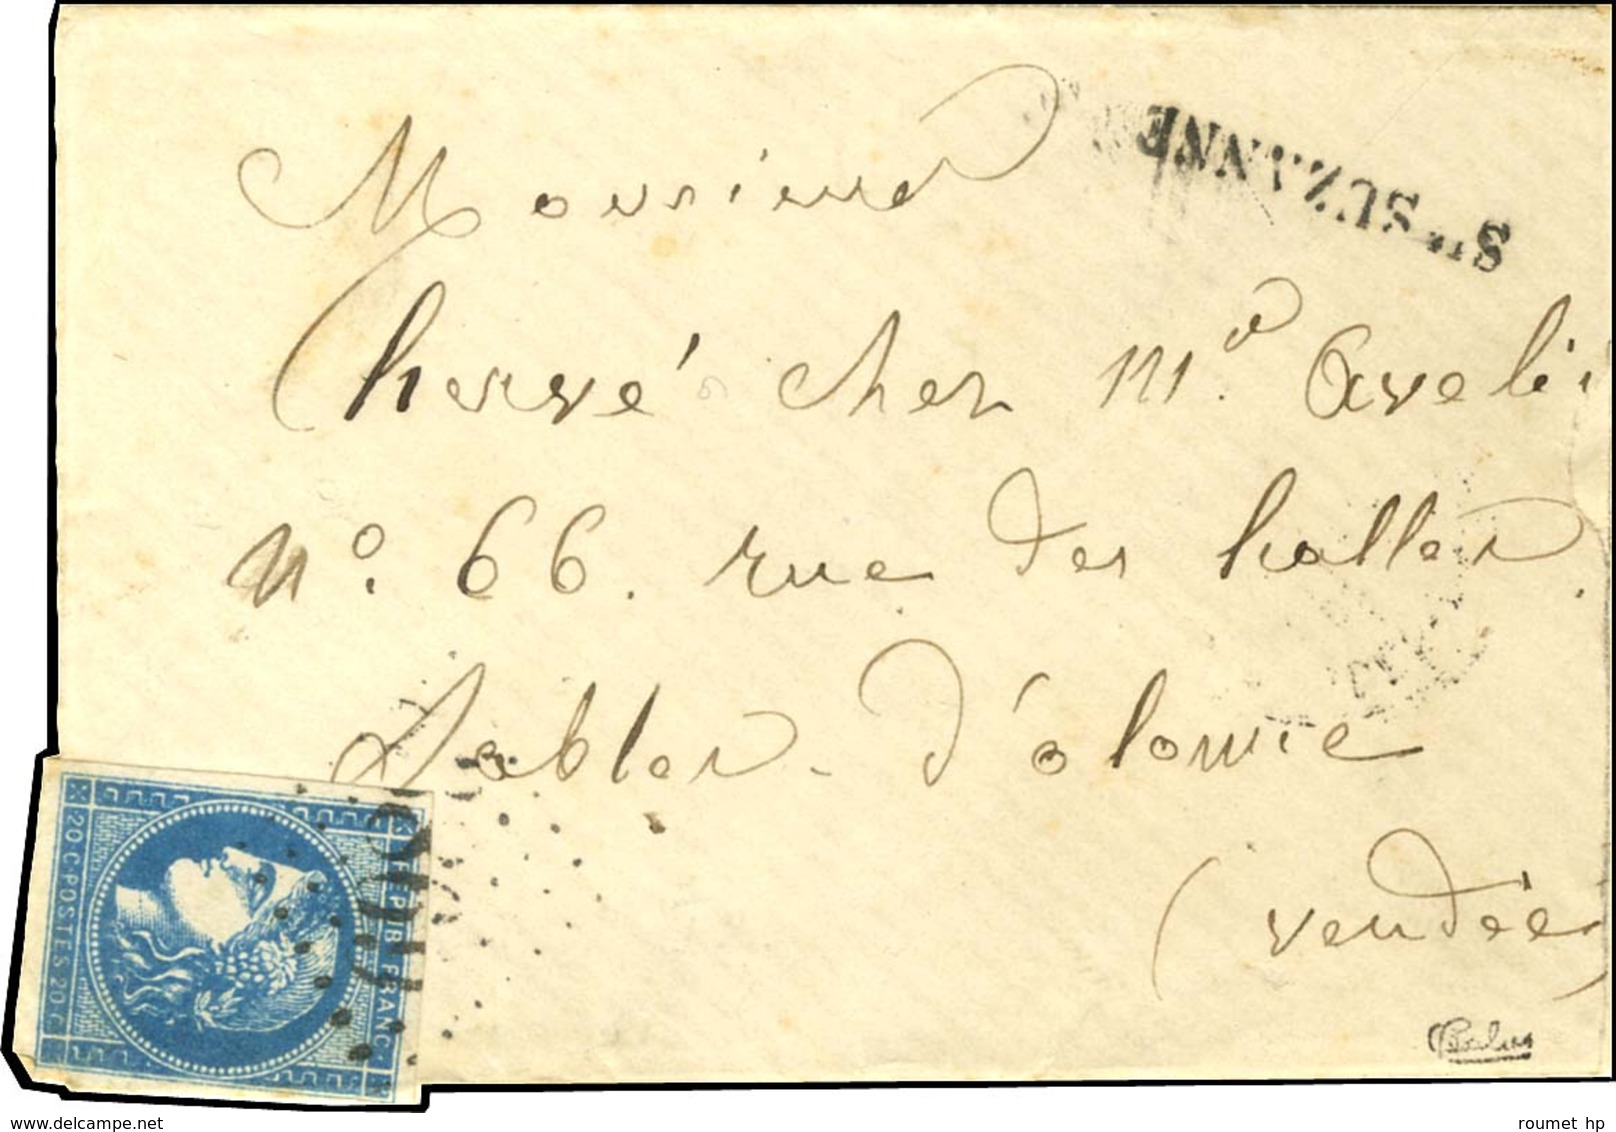 Monsieur
Sᵗᵉ SUZANNE
hervé cher mʳ
nº. 66. rue des halles.
Sables d'olonne
(vendée)
REPUB FRANC.
20 C POSTES 20 C
delcampe.net
roumet hp